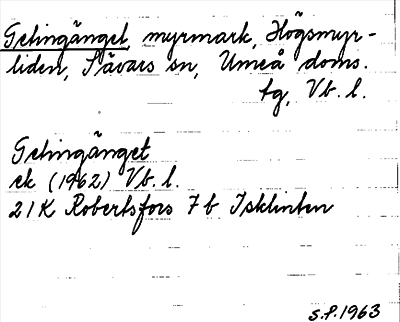 Getingänget, myrmark, Högsmyr-
liden, Sävars sn, Umeå doms.
tg, Vb. l.
Getingänget
ek (1962) Vb. l.
21K Robertsfors 7 b Isklinten
S.P. 1963